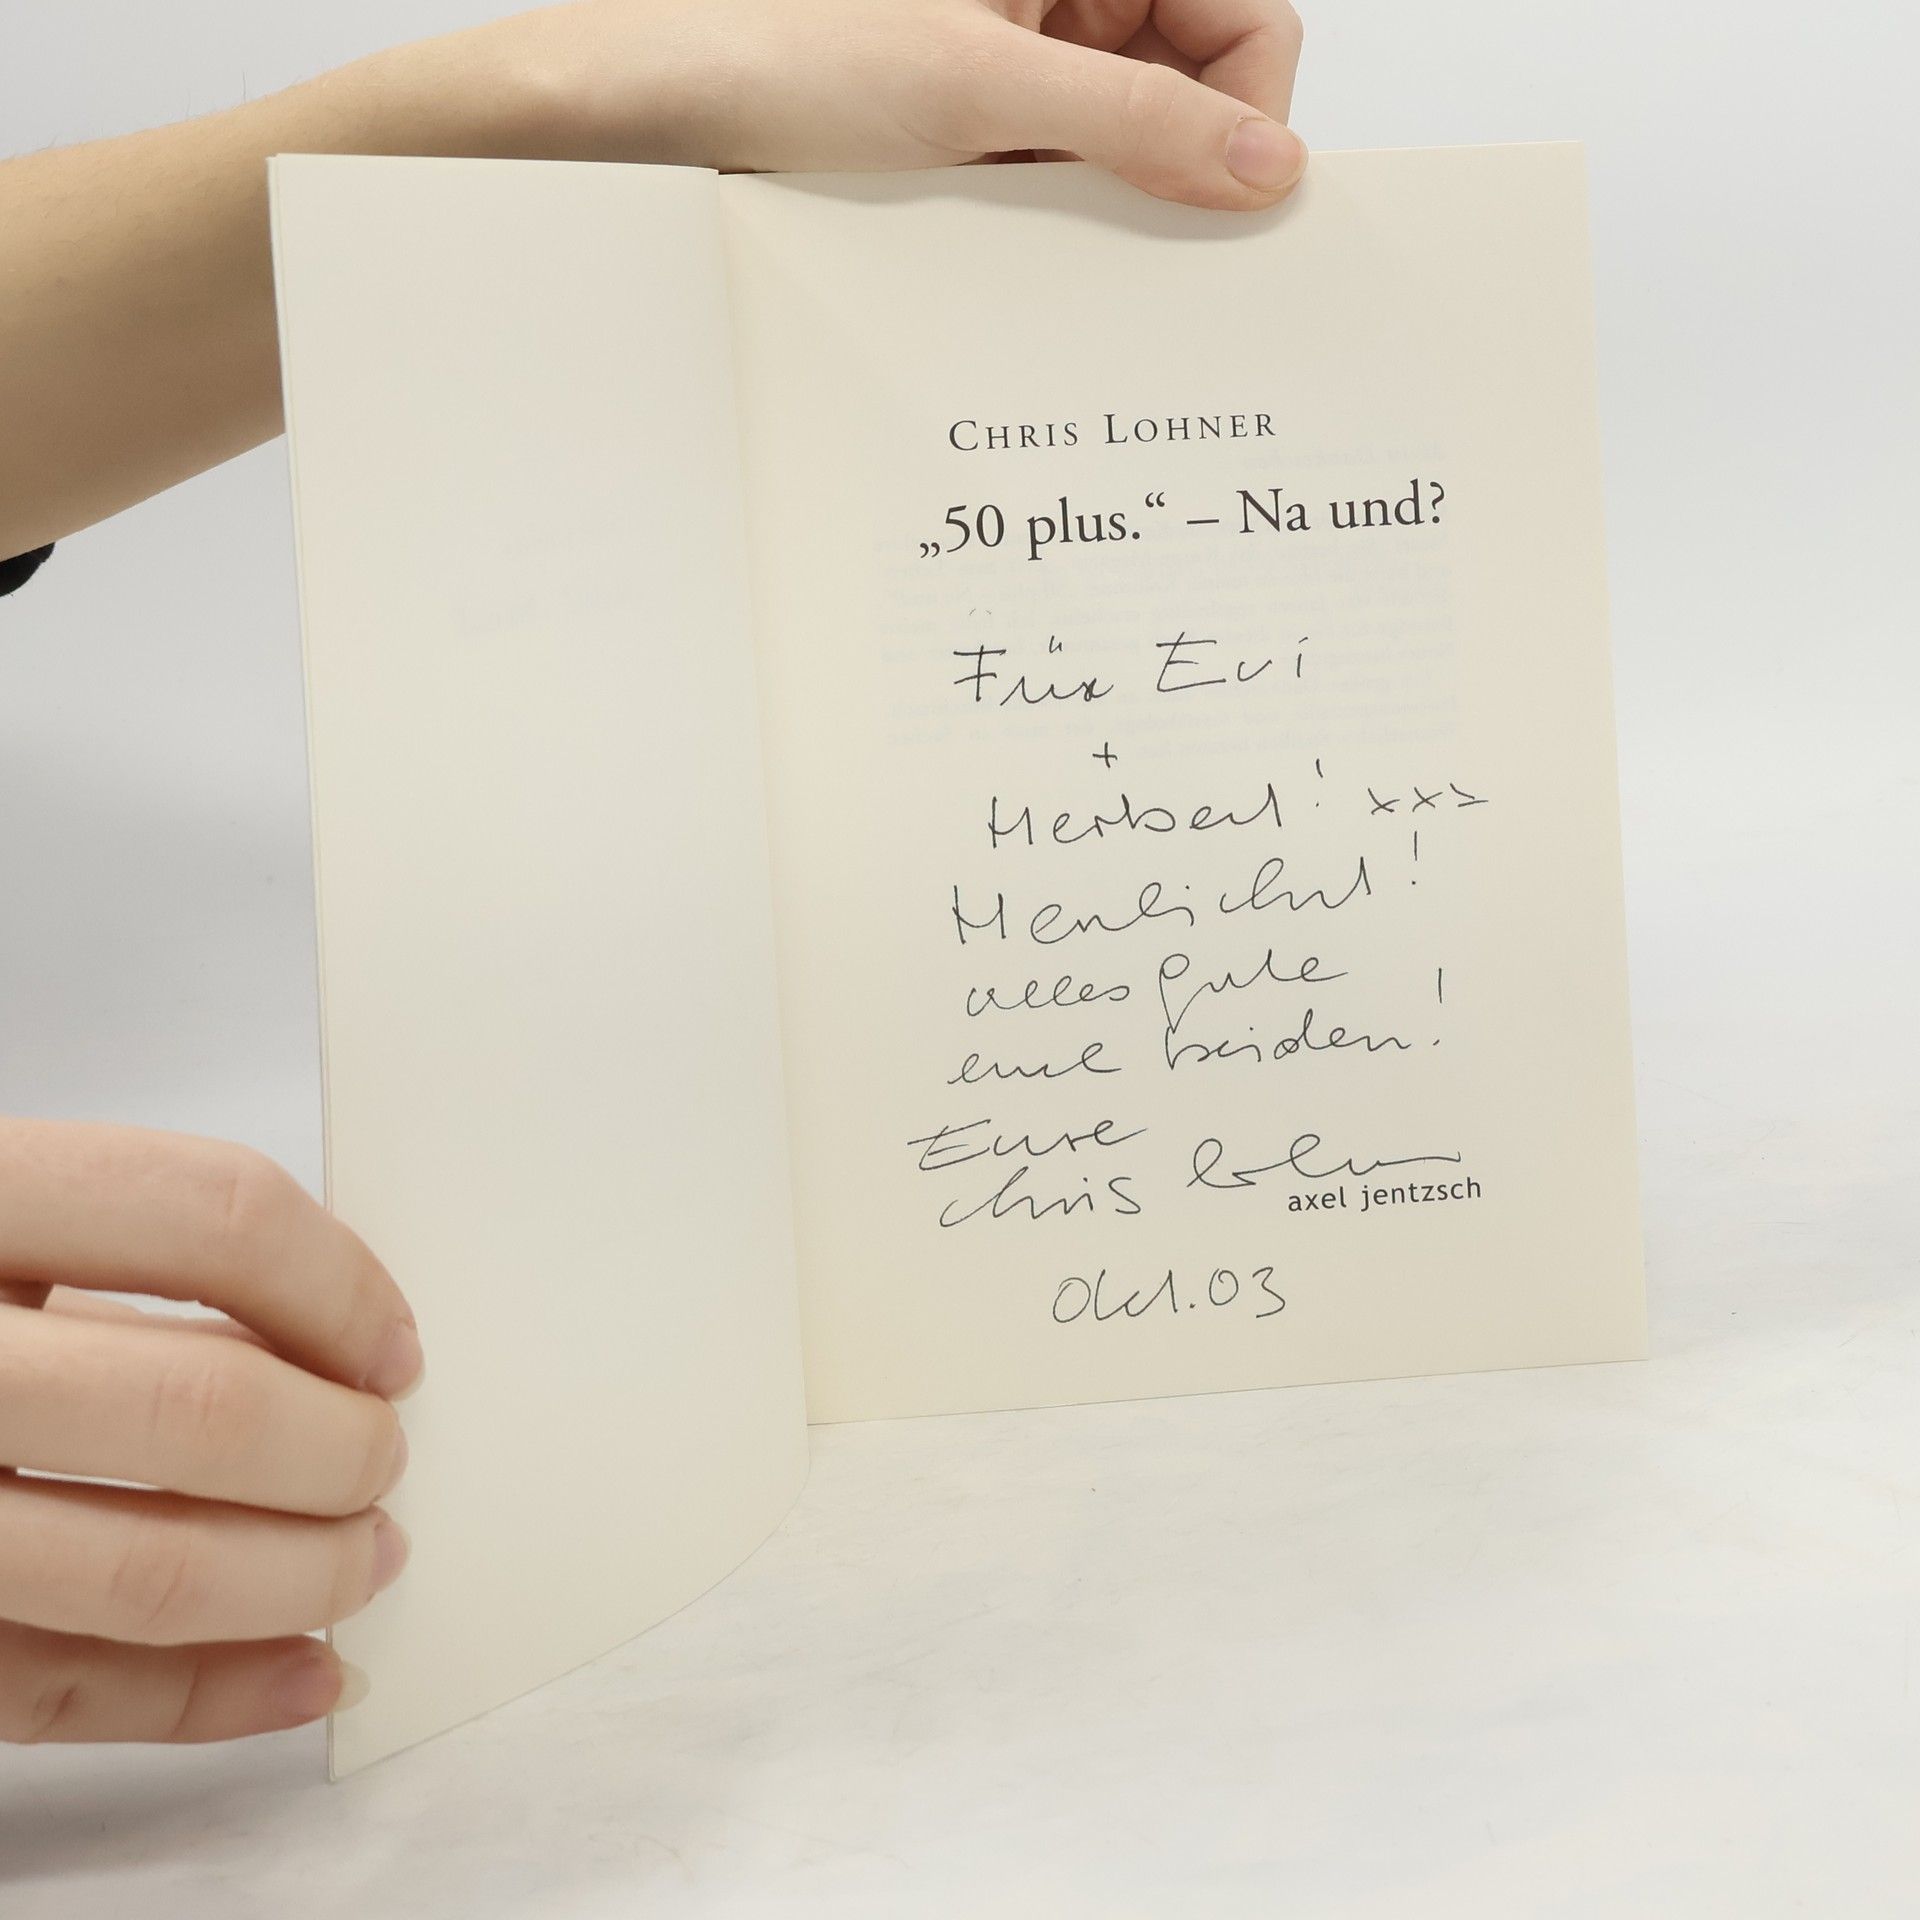 CHRIS LOHNER
„50 plus.“ – Na und?
Für Evi
+
Herbert! xxx
Herzlichst!
alles Gute
euch beiden!
Eure
Chris Lohner
axel jentzsch
Okt. 03